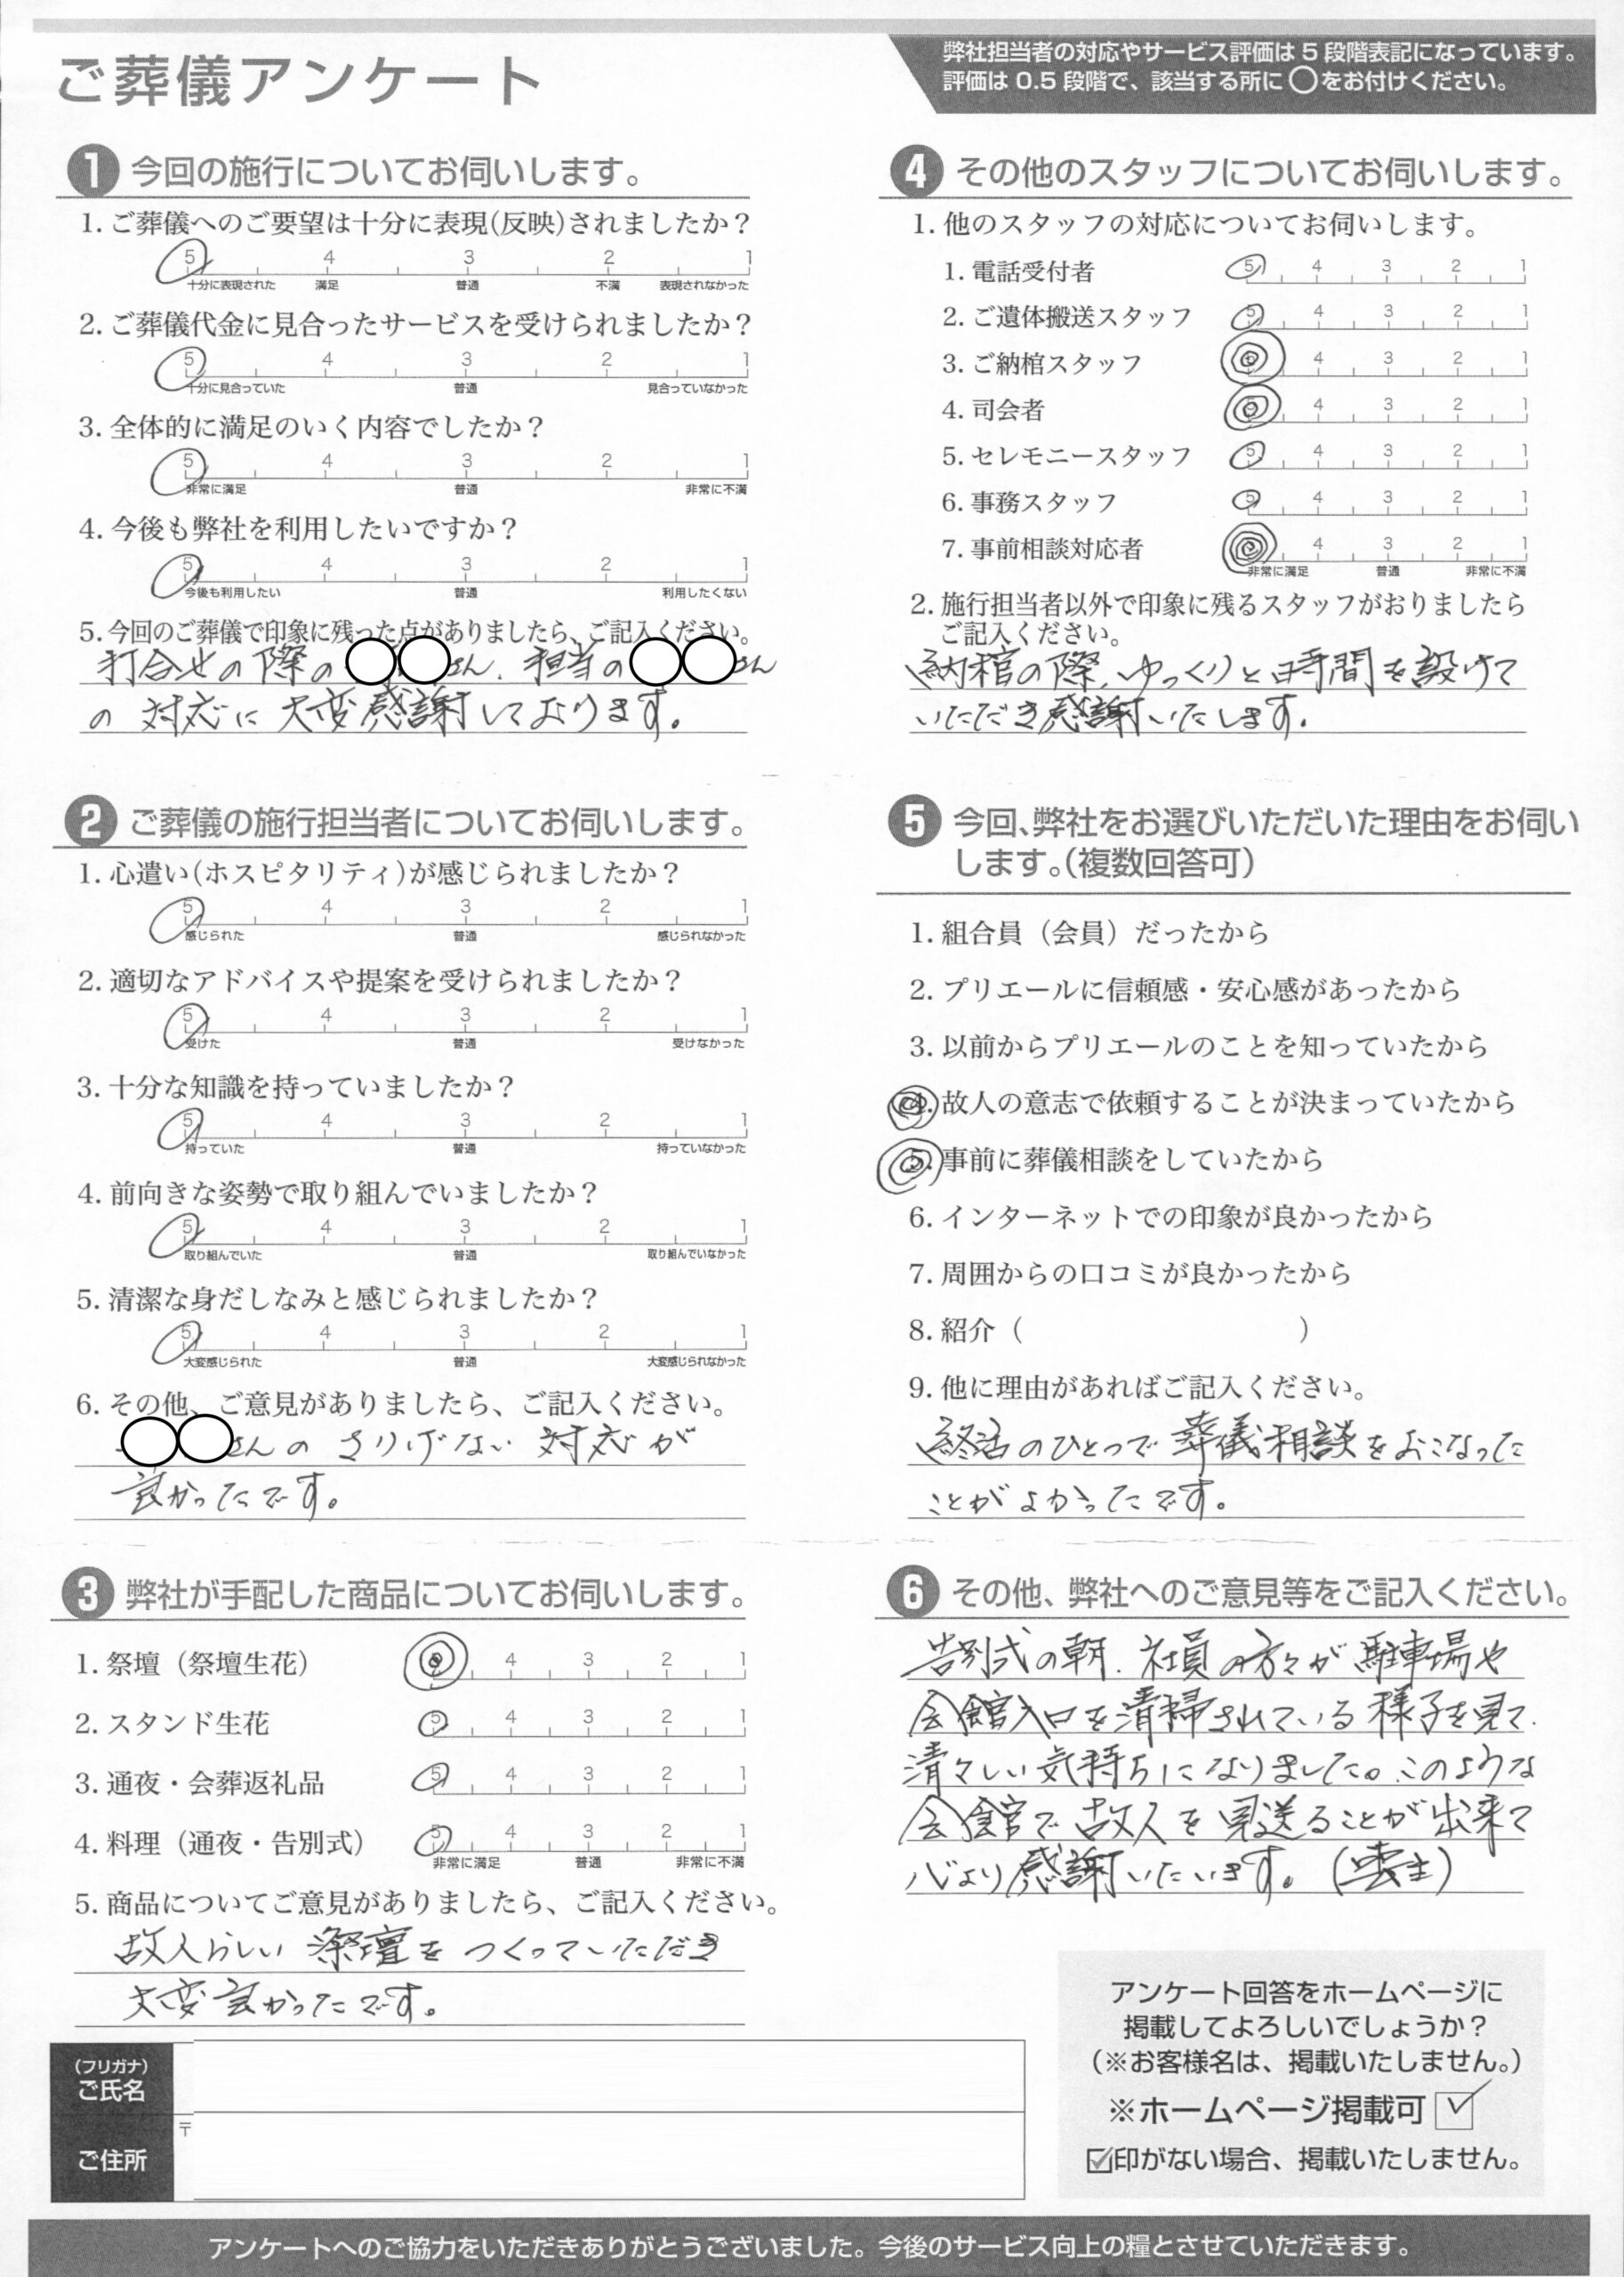 ご葬儀アンケート
弊社担当者の対応やサービス評価は5段階表記になっています。
評価は0.5段階で、該当する所に○をお付けください。
1 今回の施行についてお伺いします。
1. ご葬儀へのご要望は十分に表現(反映)されましたか？
5 4 3 2 1
十分に表現された 満足 普通 不満 表現されなかった
2. ご葬儀代金に見合ったサービスを受けられましたか？
5 4 3 2 1
十分に見合っていた 普通 見合っていなかった
3. 全体的に満足のいく内容でしたか？
5 4 3 2 1
非常に満足 普通 非常に不満
4. 今後も弊社を利用したいですか？
5 4 3 2 1
今後も利用したい 普通 利用したくない
5. 今回のご葬儀で印象に残った点がありましたら、ご記入ください。
打合せの際の○○さん、担当の○○さん
の対応に大変感謝しております。
2 ご葬儀の施行担当者についてお伺いします。
1. 心遣い(ホスピタリティ)が感じられましたか？
5 4 3 2 1
感じられた 普通 感じられなかった
2. 適切なアドバイスや提案を受けられましたか？
5 4 3 2 1
受けた 普通 受けなかった
3. 十分な知識を持っていましたか？
5 4 3 2 1
持っていた 普通 持っていなかった
4. 前向きな姿勢で取り組んでいましたか？
5 4 3 2 1
取り組んでいた 普通 取り組んでいなかった
5. 清潔な身だしなみと感じられましたか？
5 4 3 2 1
大変感じられた 普通 大変感じられなかった
6. その他、ご意見がありましたら、ご記入ください。
○○さんのさりげない対応が
良かったです。
3 弊社が手配した商品についてお伺いします。
1. 祭壇（祭壇生花） 5 4 3 2 1
2. スタンド生花 5 4 3 2 1
3. 通夜・会葬返礼品 5 4 3 2 1
4. 料理（通夜・告別式） 5 4 3 2 1
非常に満足 普通 非常に不満
5. 商品についてご意見がありましたら、ご記入ください。
故人らしい祭壇をつくっていただき
大変良かったです。
4 その他のスタッフについてお伺いします。
1. 他のスタッフの対応についてお伺いします。
1. 電話受付者 5 4 3 2 1
2. ご遺体搬送スタッフ 5 4 3 2 1
3. ご納棺スタッフ 5 4 3 2 1
4. 司会者 5 4 3 2 1
5. セレモニースタッフ 5 4 3 2 1
6. 事務スタッフ 5 4 3 2 1
7. 事前相談対応者 5 4 3 2 1
非常に満足 普通 非常に不満
2. 施行担当者以外で印象に残るスタッフがおりましたら
ご記入ください。
納棺の際、ゆっくりと時間を設けて
いただき感謝いたします。
5 今回、弊社をお選びいただいた理由をお伺い
します。（複数回答可）
1. 組合員（会員）だったから
2. プリエールに信頼感・安心感があったから
3. 以前からプリエールのことを知っていたから
4. 故人の意志で依頼することが決まっていたから
5. 事前に葬儀相談をしていたから
6. インターネットでの印象が良かったから
7. 周囲からの口コミが良かったから
8. 紹介（ ）
9. 他に理由があればご記入ください。
終活のひとつで葬儀相談をおこなった
ことがよかったです。
6 その他、弊社へのご意見等をご記入ください。
告別式の朝、社員の方々が駐車場や
会館入口を清掃されている様子を見て、
清々しい気持ちになりました。このような
会館で故人を見送ることが出来て
心より感謝いたします。（喪主）
アンケート回答をホームページに
掲載してよろしいでしょうか？
（※お客様名は、掲載いたしません。）
※ホームページ掲載可
印がない場合、掲載いたしません。
（フリガナ）
ご氏名
〒
ご住所
アンケートへのご協力をいただきありがとうございました。今後のサービス向上の糧とさせていただきます。